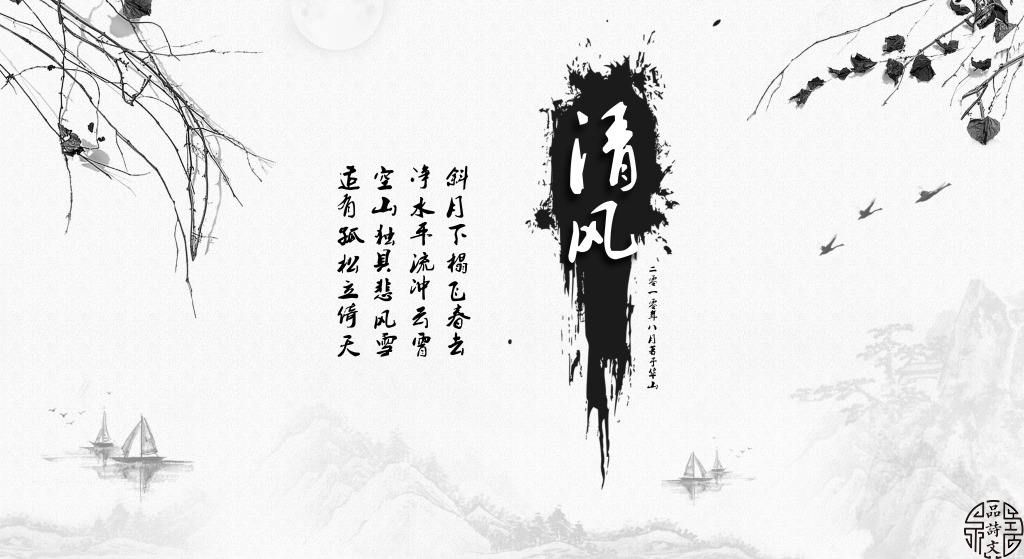 清风
二零一零年八月著于华山
斜月下榻飞春去
净水平流冲云霄
空山独具悲风雪
追有孤松立倚天
品詩文